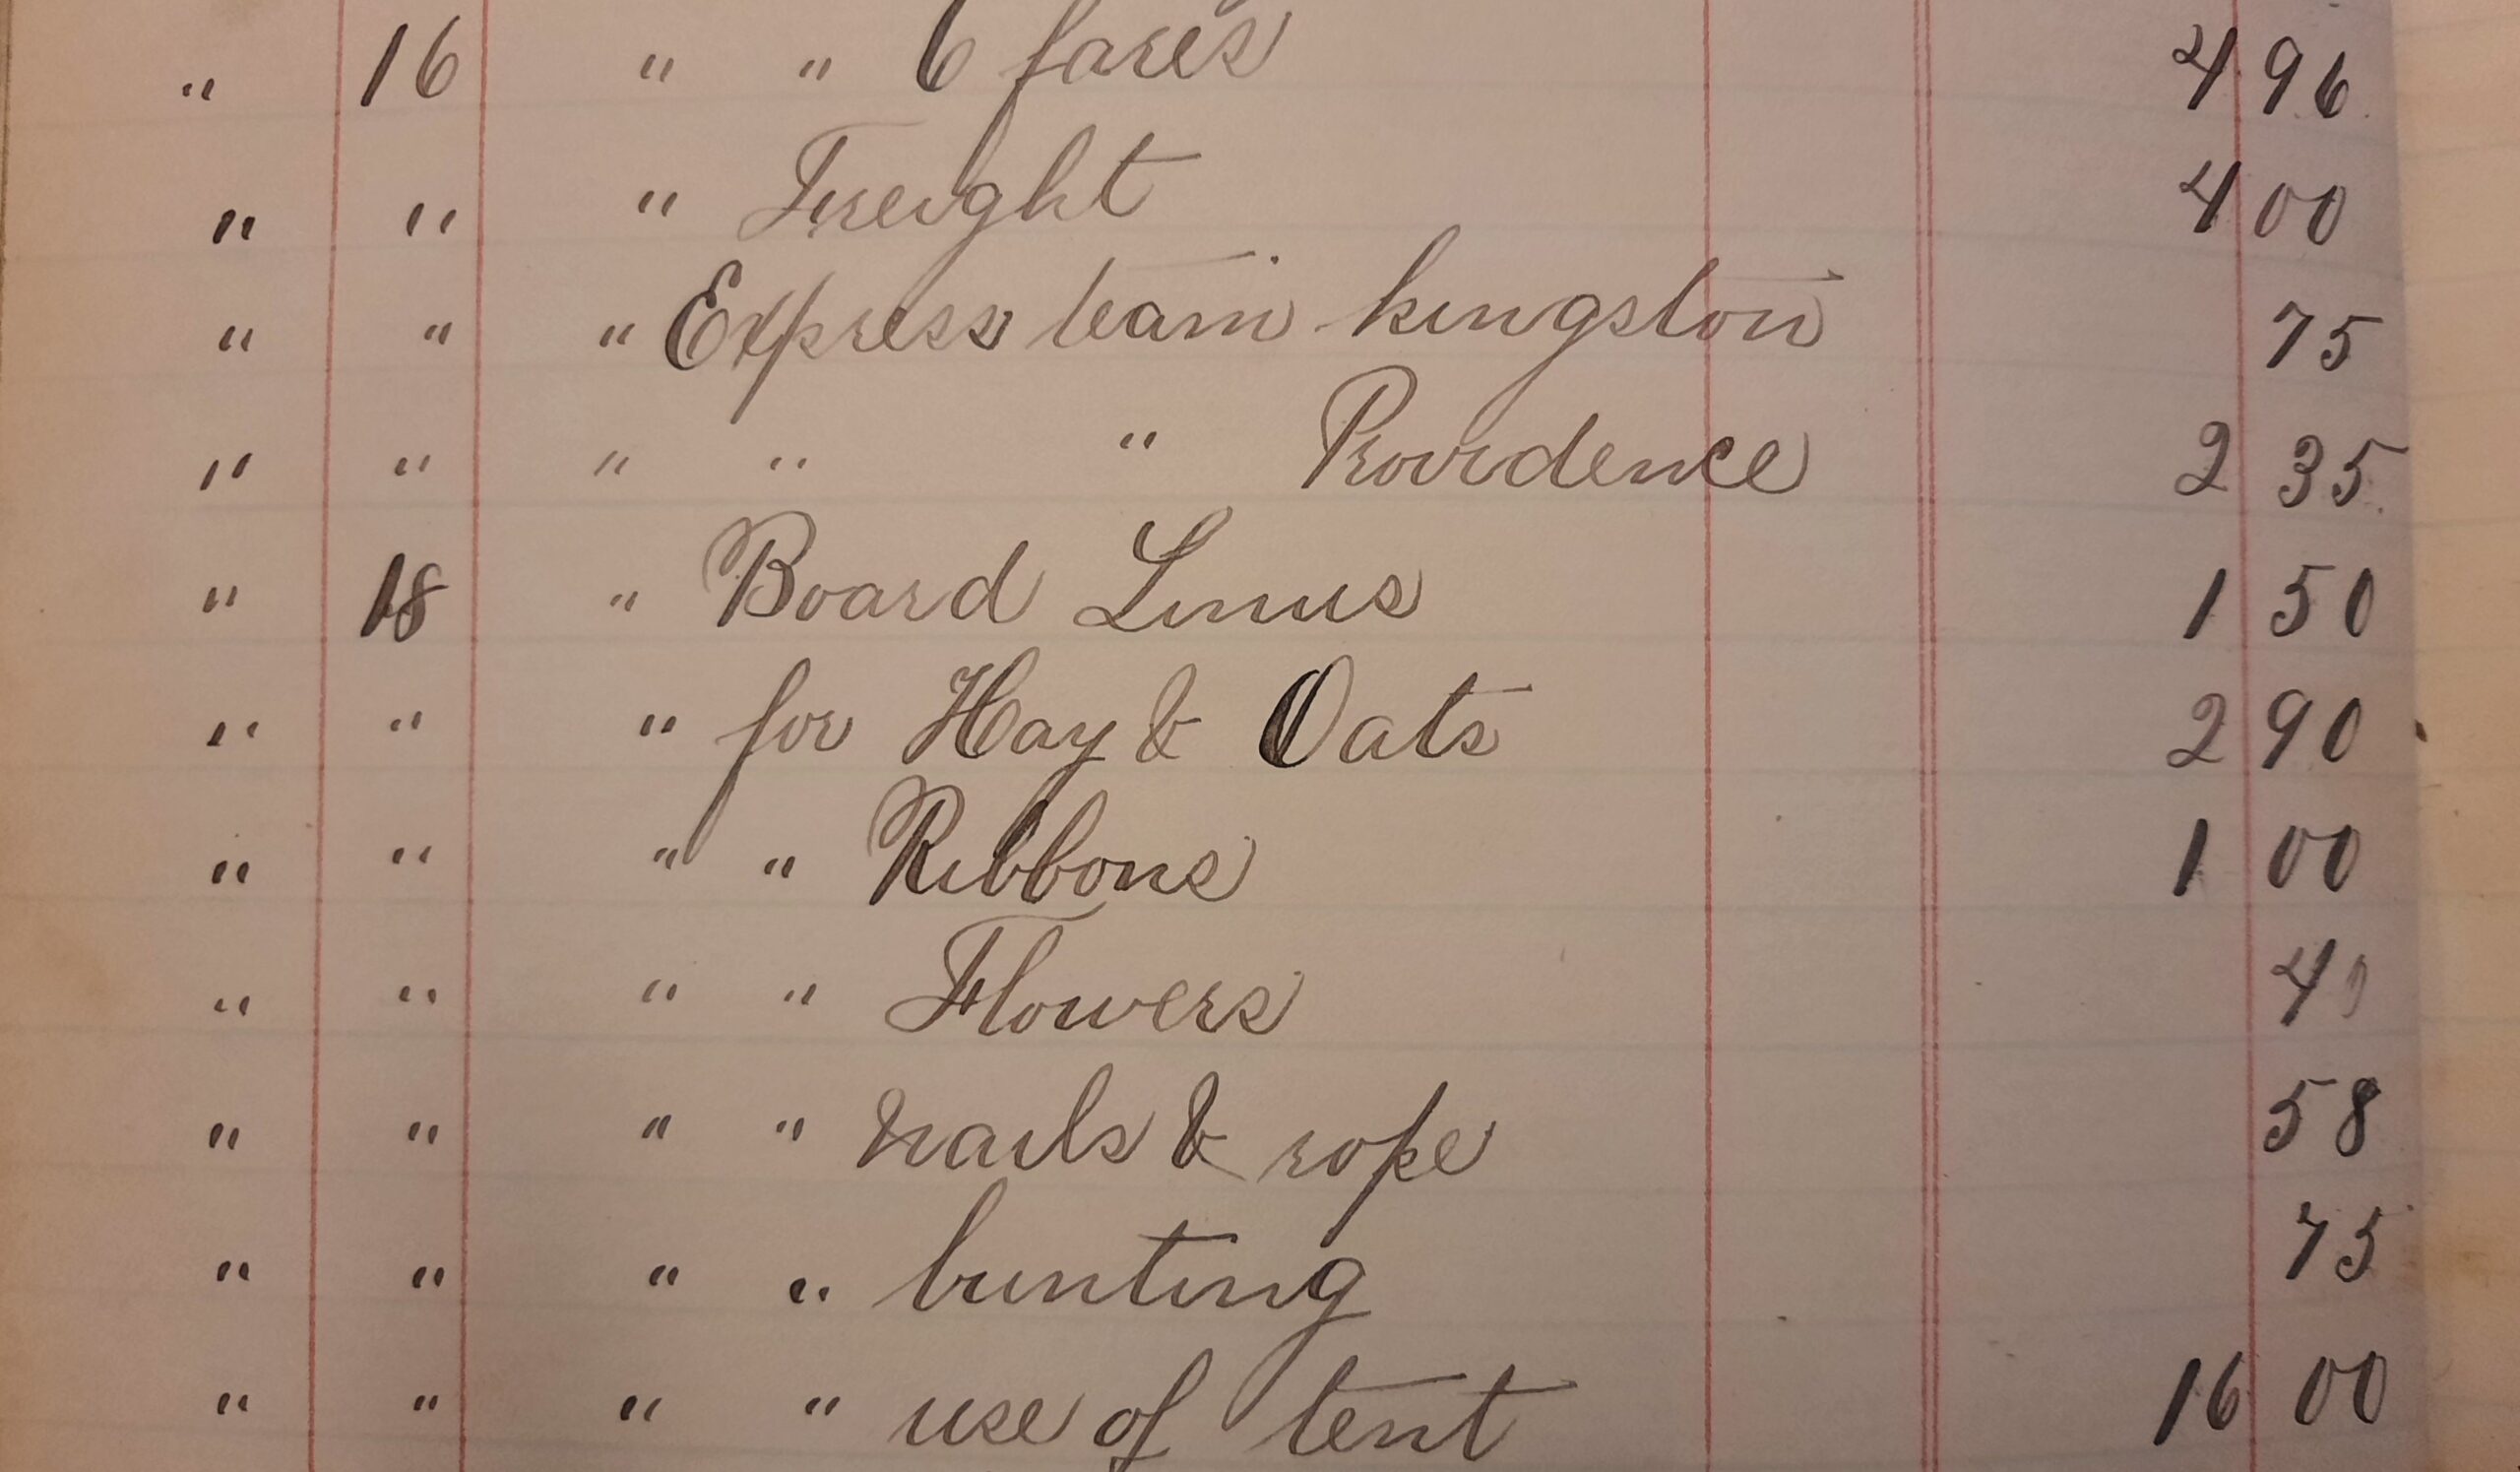 " 16 " " 6 fares 4 96
" " " Freight 4 00
" " " Express team kingston 75
" " " " " Providence 2 35
" 18 " Board Linus 1 50
" " " for Hay & Oats 2 90
" " " " Ribbons 1 00
" " " " Flowers 40
" " " " nails & rope 58
" " " " bunting 75
" " " " use of tent 16 00